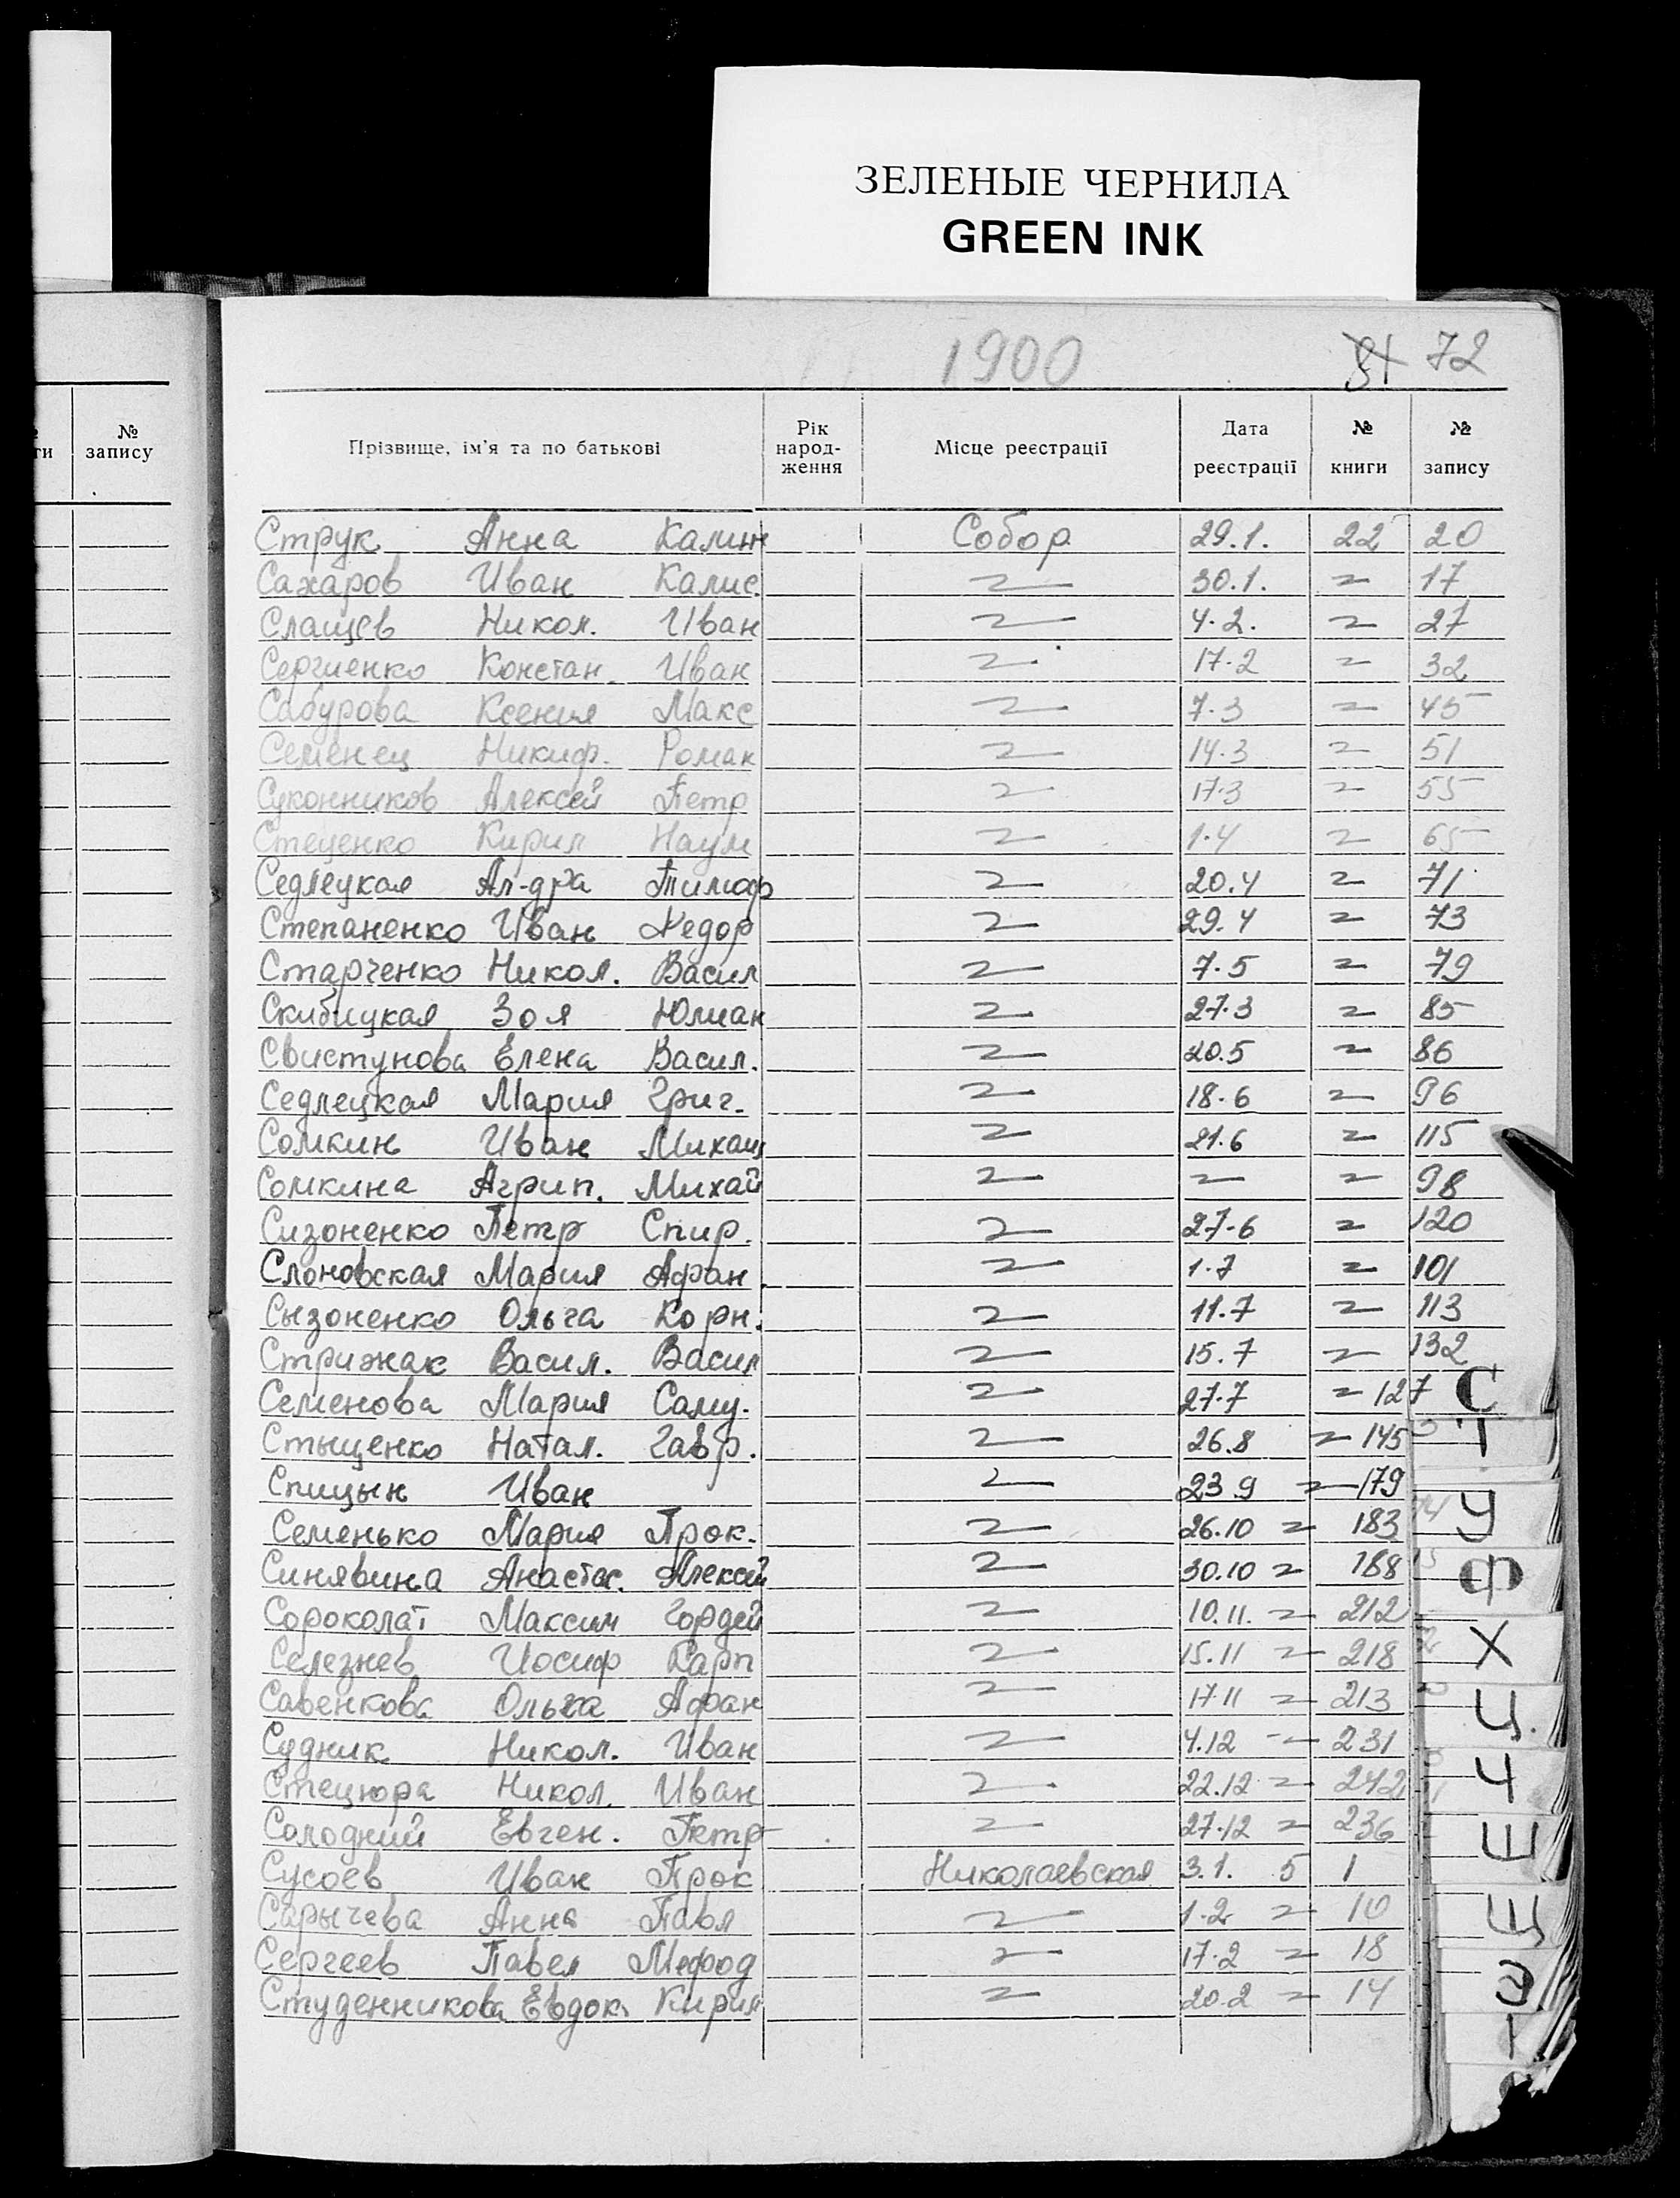 ЗЕЛЕНЫЕ ЧЕРНИЛА
GREEN INK
1900 81 72
№ запису
Прізвище, ім'я та по батькові Рік народ-ження Місце реєстрації Дата реєстрації № книги № запису
Струк Анна Калин Собор 29.1. 22 20
Сахаров Иван Калис.〃 30.1. 〃 17
Слащев Никол. Иван 〃 4.2. 〃 27
Сергиенко Констан. Иван 〃 17.2 〃 32
Сабурова Ксения Макс 〃 7.3 〃 45
Семенец Никиф. Роман 〃 14.3 〃 51
Суконников Алексей Петр 〃 17.3 〃 55
Стеценко Кирил Наум 〃 1.4 〃 65
Седлецкая Ал-дра Тимоф 〃 20.4 〃 71
Степаненко Иван Федор 〃 29.4 〃 73
Старченко Никол. Васил 〃 7.5 〃 79
Скибицкая Зоя Юлиан 〃 27.3 〃 85
Свистунова Елена Васил. 〃 20.5 〃 86
Седлецкая Мария Григ. 〃 18.6 〃 96
Сомкин Иван Михаил 〃 21.6 〃 115
Сомкина Агрип. Михай 〃 〃 〃 98
Сизоненко Петр Спир. 〃 27.6 〃 120
Слоновская Мария Афан 〃 1.7 〃 101
Сызоненко Ольга Корн. 〃 11.7 〃 113
Стрижак Васил. Васил 〃 15.7 〃 132
Семенова Мария Саму. 〃 27.7 〃 127 С
Стыценко Натал. Гавр. 〃 26.8 〃 145 Т
Спицын Иван 〃 23.9 〃 179
Семенько Мария Прок. 〃 26.10 〃 183 У
Синявина Анастас. Алексей 〃 30.10 〃 188 Ф
Сороколат Максим Гордей 〃 10.11. 〃 212
Селезнев Иосиф Карп 〃 15.11 〃 218 Х
Савенкова Ольга Афан 〃 17.11 〃 213
Судник Никол. Иван 〃 4.12 〃 231 Ц.
Стецюра Никол. Иван 〃 22.12 〃 242 Ч
Солодний Евген. Петр 〃 27.12 〃 236 Ш
Сусоев Иван Прок Николаевская 3.1. 5 1
Сарычева Анна Павл 〃 1.2 〃 10 Щ
Сергеев Павел Мефод 〃 17.2 〃 18
Студенникова Евдок. Кирил 〃 20.2 〃 14 Э